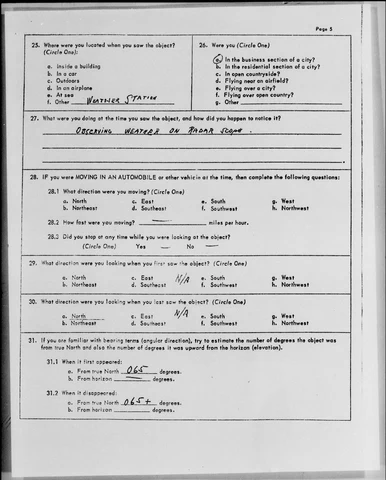 Page 5
25. Where were you located when you saw the object?
(Circle One):
a. Inside a building
b. In a car
c. Outdoors
d. In an airplane
e. At sea
f. Other WEATHER STATION
26. Were you (Circle One)
a. In the business section of a city?
b. In the residential section of a city?
c. In open countryside?
d. Flying near an airfield?
e. Flying over a city?
f. Flying over open country?
g. Other
27. What were you doing at the time you saw the object, and how did you happen to notice it?
OBSERVING WEATHER ON RADAR SCOPE.
28. IF you were MOVING IN AN AUTOMOBILE or other vehicle at the time, then complete the following questions:
28.1 What direction were you moving? (Circle One)
a. North c. East e. South g. West
b. Northeast d. Southeast f. Southwest h. Northwest
28.2 How fast were you moving? miles per hour.
28.3 Did you stop at any time while you were looking at the object?
(Circle One) Yes No
29. What direction were you looking when you first saw the object? (Circle One)
N/A
a. North c. East e. South g. West
b. Northeast d. Southeast f. Southwest h. Northwest
30. What direction were you looking when you last saw the object? (Circle One)
N/A
a. North c. East e. South g. West
b. Northeast d. Southeast f. Southwest h. Northwest
31. If you are familiar with bearing terms (angular direction), try to estimate the number of degrees the object was
from true North and also the number of degrees it was upward from the horizon (elevation).
31.1 When it first appeared:
a. From true North 065 degrees.
b. From horizon degrees.
31.2 When it disappeared:
a. From true North 065+ degrees.
b. From horizon degrees.